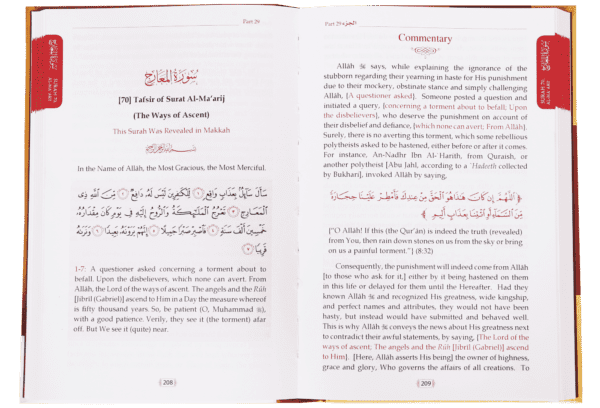 Part 29
سورة المعارج
[70] Tafsir of Surat Al-Ma'arij
(The Ways of Ascent)
This Surah Was Revealed in Makkah
In the Name of Allāh, the Most Gracious, the Most Merciful.
سَأَلَ سَآئِلٌۢ بِعَذَابٍ وَاقِعٍ ١ لِّلْكَٰفِرِينَ لَيْسَ لَهُۥ دَافِعٌ ٢ مِّنَ ٱللَّهِ ذِى
ٱلْمَعَارِجِ ٣ تَعْرُجُ ٱلْمَلَٰٓئِكَةُ وَٱلرُّوحُ إِلَيْهِ فِى يَوْمٍ كَانَ مِقْدَارُهُۥ
خَمْسِينَ أَلْفَ سَنَةٍ ٤ فَٱصْبِرْ صَبْرًا جَمِيلًا ٥ إِنَّهُمْ يَرَوْنَهُۥ بَعِيدًا ٦ وَنَرَىٰهُ
قَرِيبًا ٧
1-7: A questioner asked concerning a torment about to
befall. Upon the disbelievers, which none can avert. From
Allāh, the Lord of the ways of ascent. The angels and the Rūh
[Jibril (Gabriel)] ascend to Him in a Day the measure whereof
is fifty thousand years. So, be patient (O, Muhammad ﷺ),
with a good patience. Verily, they see it (the torment) afar
off. But We see it (quite) near.
208
SURAH 70
AL-MA'ARIJ
Part 29 الجزء
Commentary
Allāh says, while explaining the ignorance of the
stubborn regarding their yearning in haste for His punishment
due to their mockery, obstinate stance and simply challenging
Allāh, [A questioner asked]. Someone posted a question and
initiated a query, [concerning a torment about to befall; Upon
the disbelievers], who deserve the punishment on account of
their disbelief and defiance, [which none can avert; From Allāh].
Surely, there is no averting this torment, which some rebellious
polytheists asked to be hastened, either before or after it comes.
For instance, An-Nadhr Ibn Al-Harith, from Quraish, or
another polytheist [Abu Jahl, according to a 'Hadeeth collected
by Bukhari], invoked Allāh by saying,
﴿ ٱللَّهُمَّ إِن كَانَ هَٰذَا هُوَ ٱلْحَقَّ مِنْ عِندِكَ فَأَمْطِرْ عَلَيْنَا حِجَارَةً
مِّنَ ٱلسَّمَآءِ أَوِ ٱئْتِنَا بِعَذَابٍ أَلِيمٍ ﴾
("O Allāh! If this (the Qur'ān) is indeed the truth (revealed)
from You, then rain down stones on us from the sky or bring
on us a painful torment.") (8:32)
Consequently, the punishment will indeed come from Allāh
[to those who ask for it,] either by it being hastened on them
in this life or delayed for them until the Hereafter. Had they
known Allāh and recognized His greatness, wide kingship,
and perfect names and attributes, they would not have been
hasty, but instead would have submitted and behaved well.
This is why Allāh conveys the news about His greatness next
to contradict their awful statements, by saying, [The Lord of the
ways of ascent; The angels and the Rūh [Jibril (Gabriel)] ascend
to Him]. [Here, Allāh asserts His being] the owner of highness,
grace and glory, Who governs the affairs of all creations. To
209
SURAH 70
AL-MA'ARIJ